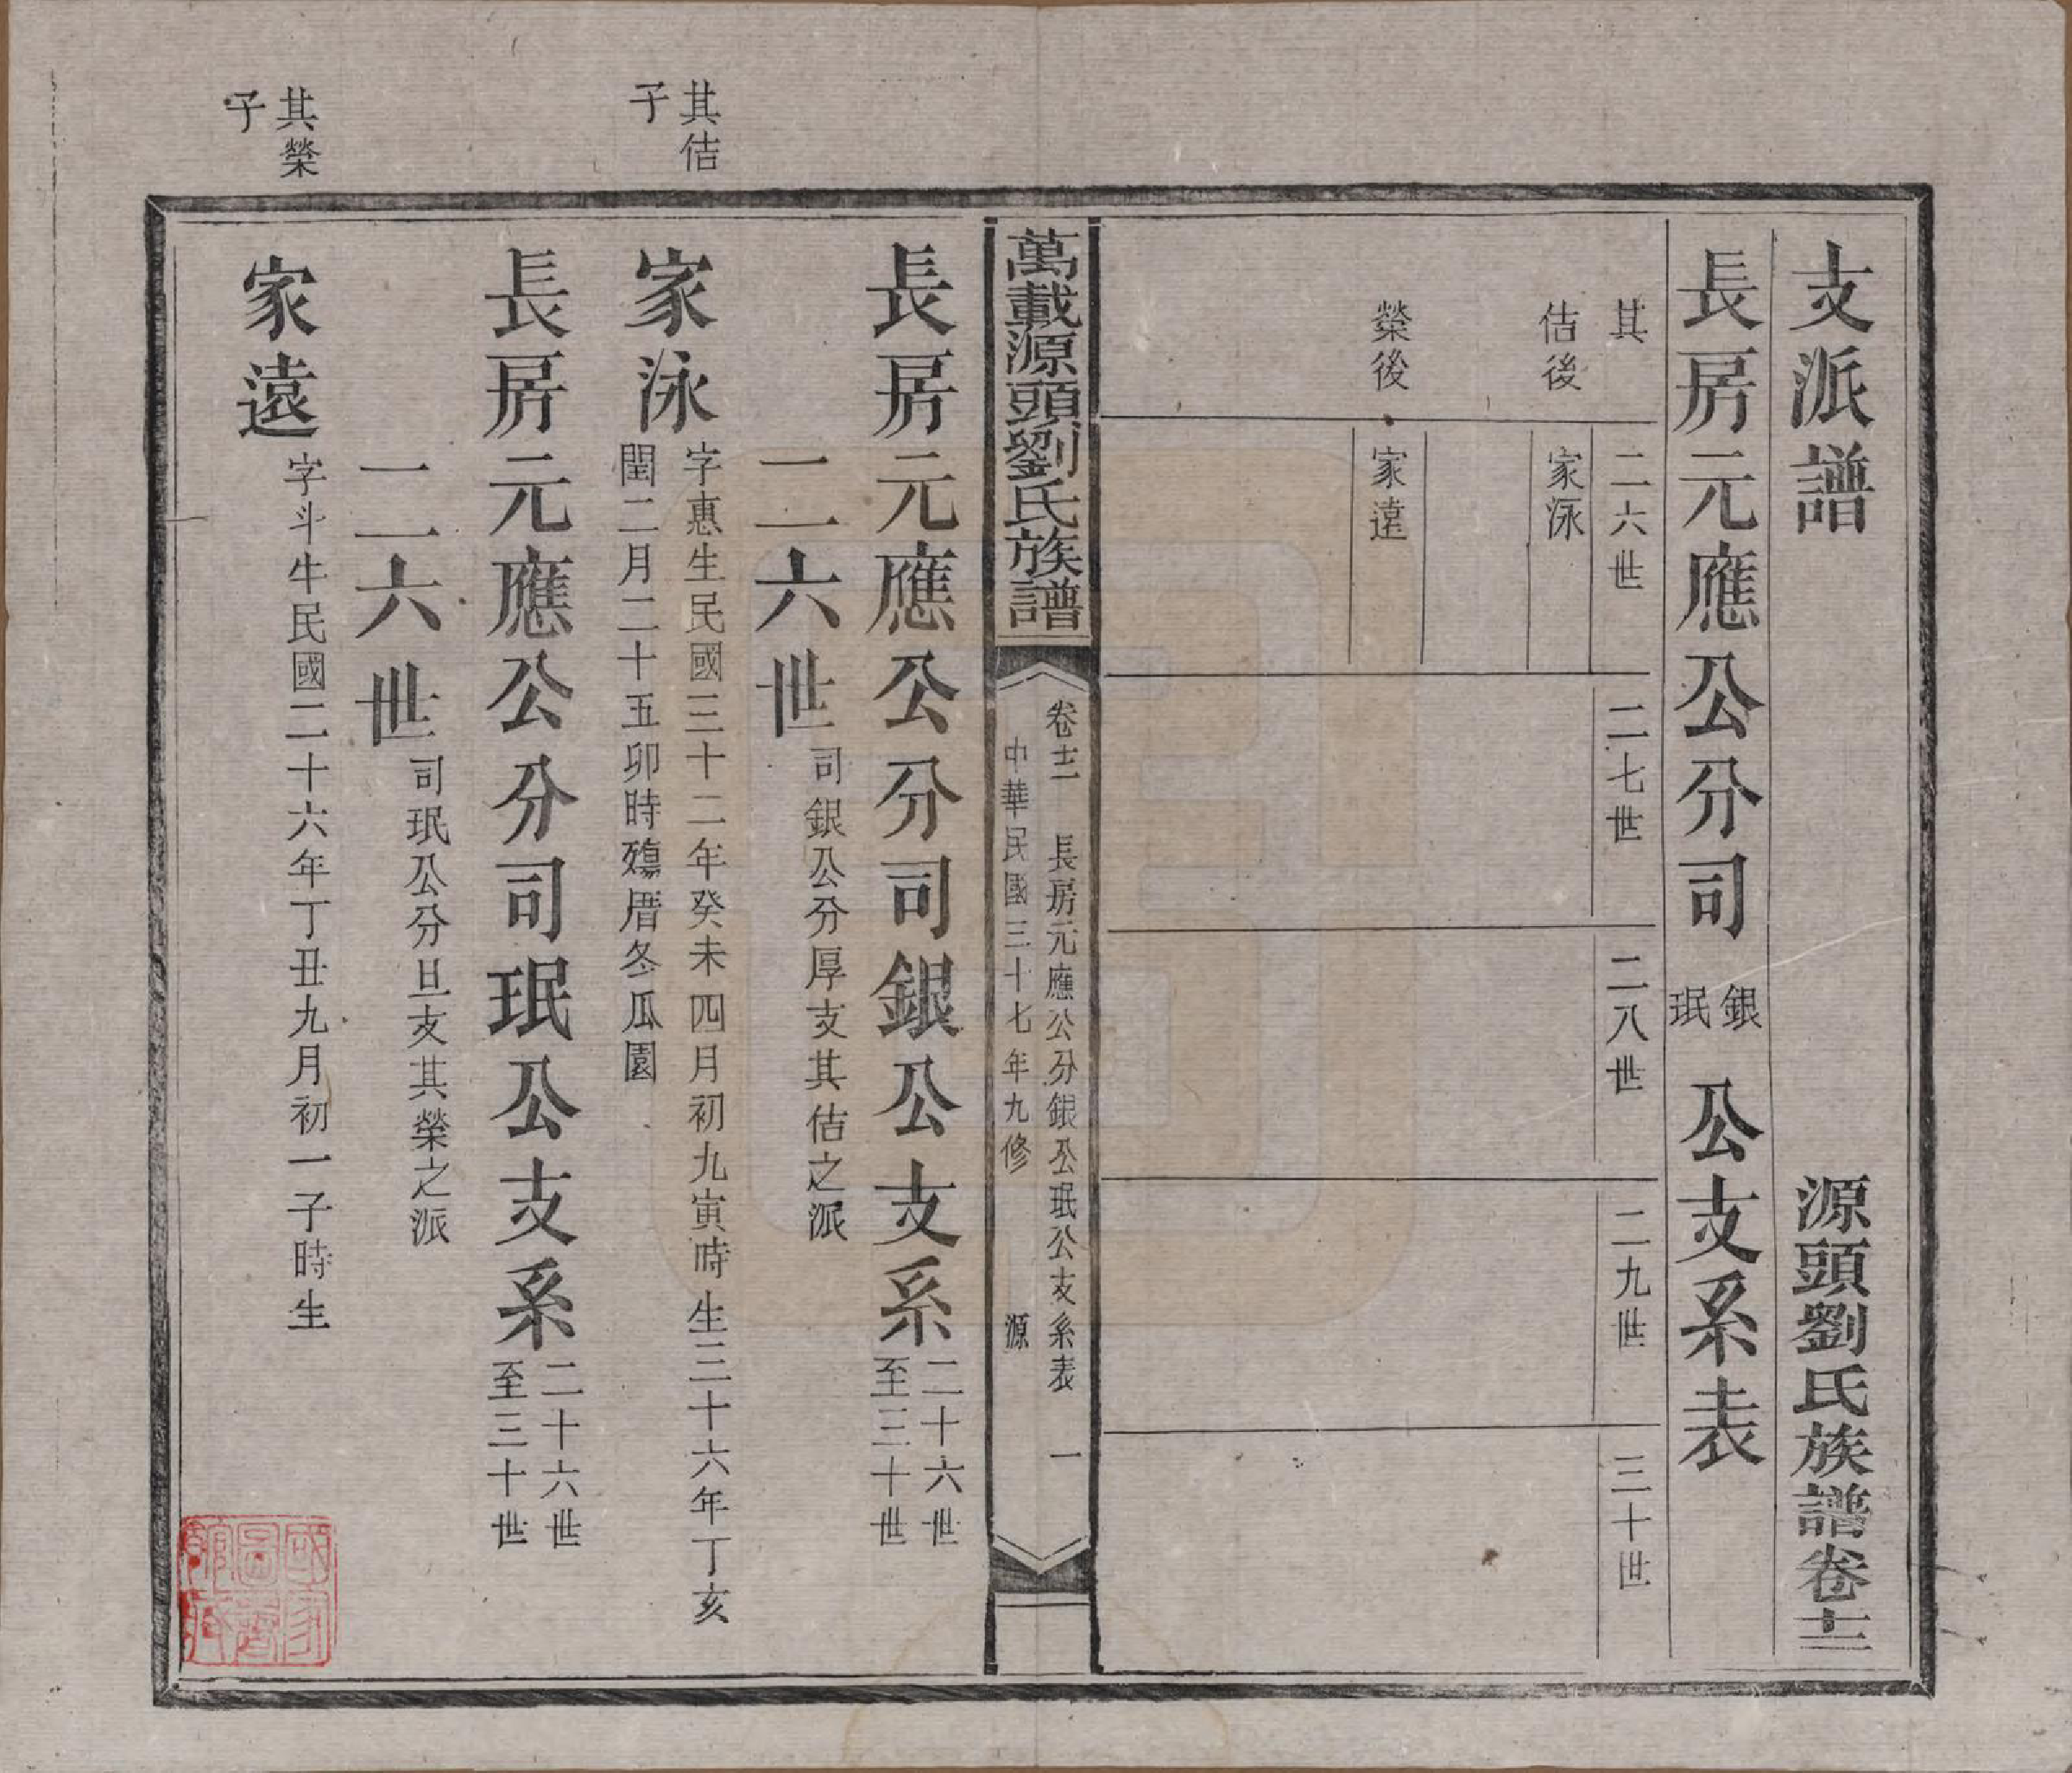 支派譜
源頭劉氏族譜卷十二
長房元應公分司銀珉公支系表
其
佶後
榮後
二六世
家泳
家遠
二七世
二八世
二九世
三十世
萬載源頭劉氏族譜
卷十二
長房元應公分銀公珉公支系表
一
中華民國三十七年九修
源
長房元應公分司銀公支系
二十六世
至三十世
二六世
司銀公分厚支其佶之派
其佶
子
家泳
字惠生民國三十二年癸未四月初九寅時生三十六年丁亥
閏二月二十五卯時殤厝冬瓜園
長房元應公分司珉公支系
二十六世
至三十世
二六世
司珉公分旦支其榮之派
其榮
子
家遠
字斗牛民國二十六年丁丑九月初一子時生
國家
圖書
館藏